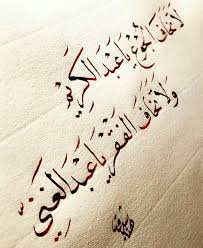 لا تخاف الجوع يا عبدَ الكريم
ولا تخاف الفقر يا عبدَ الغنيّ